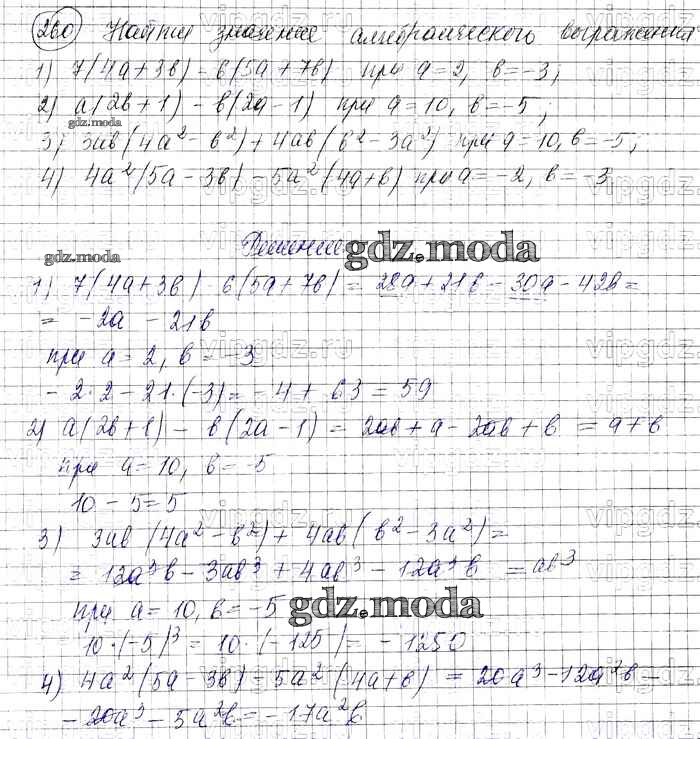 260 Найти значение алгебраического выражения
1) 7(4a+3b) - 6(5a+7b) при a=2, b=-3;
2) a(2b+1) - b(2a-1) при a=10, b=-5;
gdz.moda
3) 3ab(4a²-b²) + 4ab(b²-3a²) при a=10, b=-5;
4) 4a²(5a-3b) - 5a²(4a+b) при a=-2, b=-3
Решение
gdz.moda
gdz.moda
1) 7(4a+3b) - 6(5a+7b) = 28a+21b-30a-42b=
= -2a - 21b
при a=2, b=-3
-2·2-21·(-3)= -4+63=59
2) a(2b+1) - b(2a-1) = 2ab+a-2ab+b = a+b
при a=10, b=-5
10-5=5
3) 3ab(4a²-b²)+4ab(b²-3a²)=
= 12a³b-3ab³+4ab³-12a³b = ab³
при a=10, b=-5
gdz.moda
10·(-5)³=10·(-125)=-1250
4) 4a²(5a-3b)-5a²(4a+b) = 20a³-12a²b-
-20a³-5a²b=-17a²b